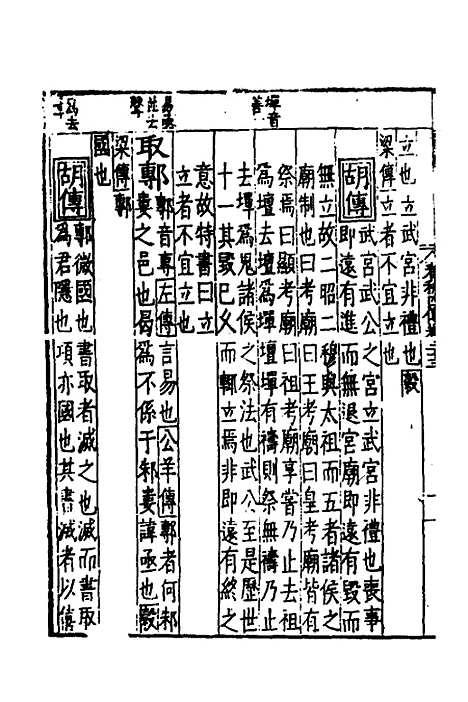 立也立武宮非禮也穀
梁傳立者不宜立也
胡傳 武宮武公之宮立武宮非禮也喪事
即遠有進而無退宮廟即遠有毀而
無立故二昭二穆與太祖而五者諸侯之
廟制也曰考廟曰王考廟曰皇考廟皆有
祭焉曰顯考廟曰祖考廟享嘗乃止去祖
為壇去壇為墠壇墠有禱則祭無禱乃止
去墠為鬼諸侯之祭法也武公至是歷世
十一其毀已久而輒立焉非即遠有終之
意故特書曰立
立者不宜立也
取鄟 鄟音專左傳言易也公羊傳鄟者何邾
婁之邑也曷為不係于邾婁諱亟也穀
梁傳鄟
國也
胡傳 鄟微國也書取者滅之也滅而書取
為君隱也項亦國也其書滅者以僖
墠音
善
易去
聲
為去